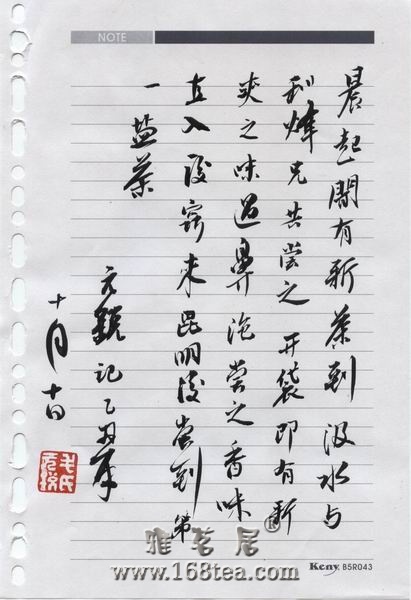 NOTE
晨起闻有新茶到汲水与
利烽兄共尝之开袋即有新
爽之味过鼻泡尝之香味
直入
来昆明后尝到第
一盏茶
元
记乙丑年
十月十日
雅茗居®
www.168tea.com
Keny B5R043